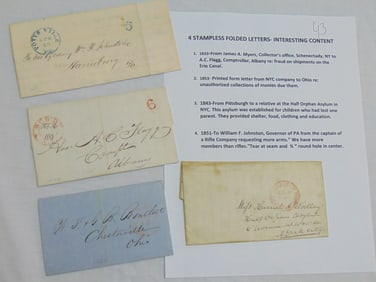 43
4 STAMPLESS FOLDED LETTERS- INTERESTING CONTENT
1. 1833-From James A. Myers, Collector's office, Schenectady, NY to
A.C. Flagg, Comptroller, Albany re: fraud on shipments on the
Erie Canal.
2. 1853- Printed form letter from NYC company to Ohio re:
unauthorized collections of monies due them.
3. 1843-From Pittsburgh to a relative at the Half Orphan Asylum in
NYC. This asylum was established for children who had lost one
parent. They provided shelter, food, clothing and education.
4. 1851-To William F. Johnston, Governor of PA from the captain of
a Rifle Company requesting more arms. "We have more
members than rifles."Tear at seam and ¾ " round hole in center.
5
Harrisburg
6
Hon. A. C. Flagg
Albany
Ohio
Miss Harriet
Half Orphan Asylum